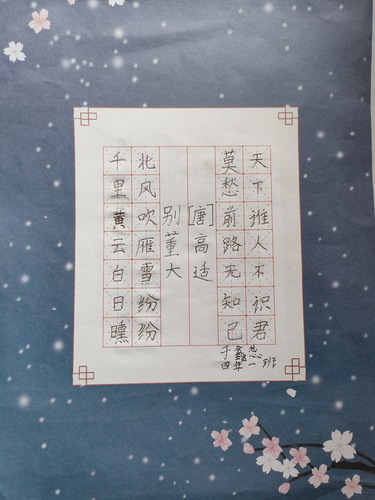 千里黄云白日曛
北风吹雁雪纷纷
别董大
[唐]高适
莫愁前路无知己
天下谁人不识君
于鑫
四年一班